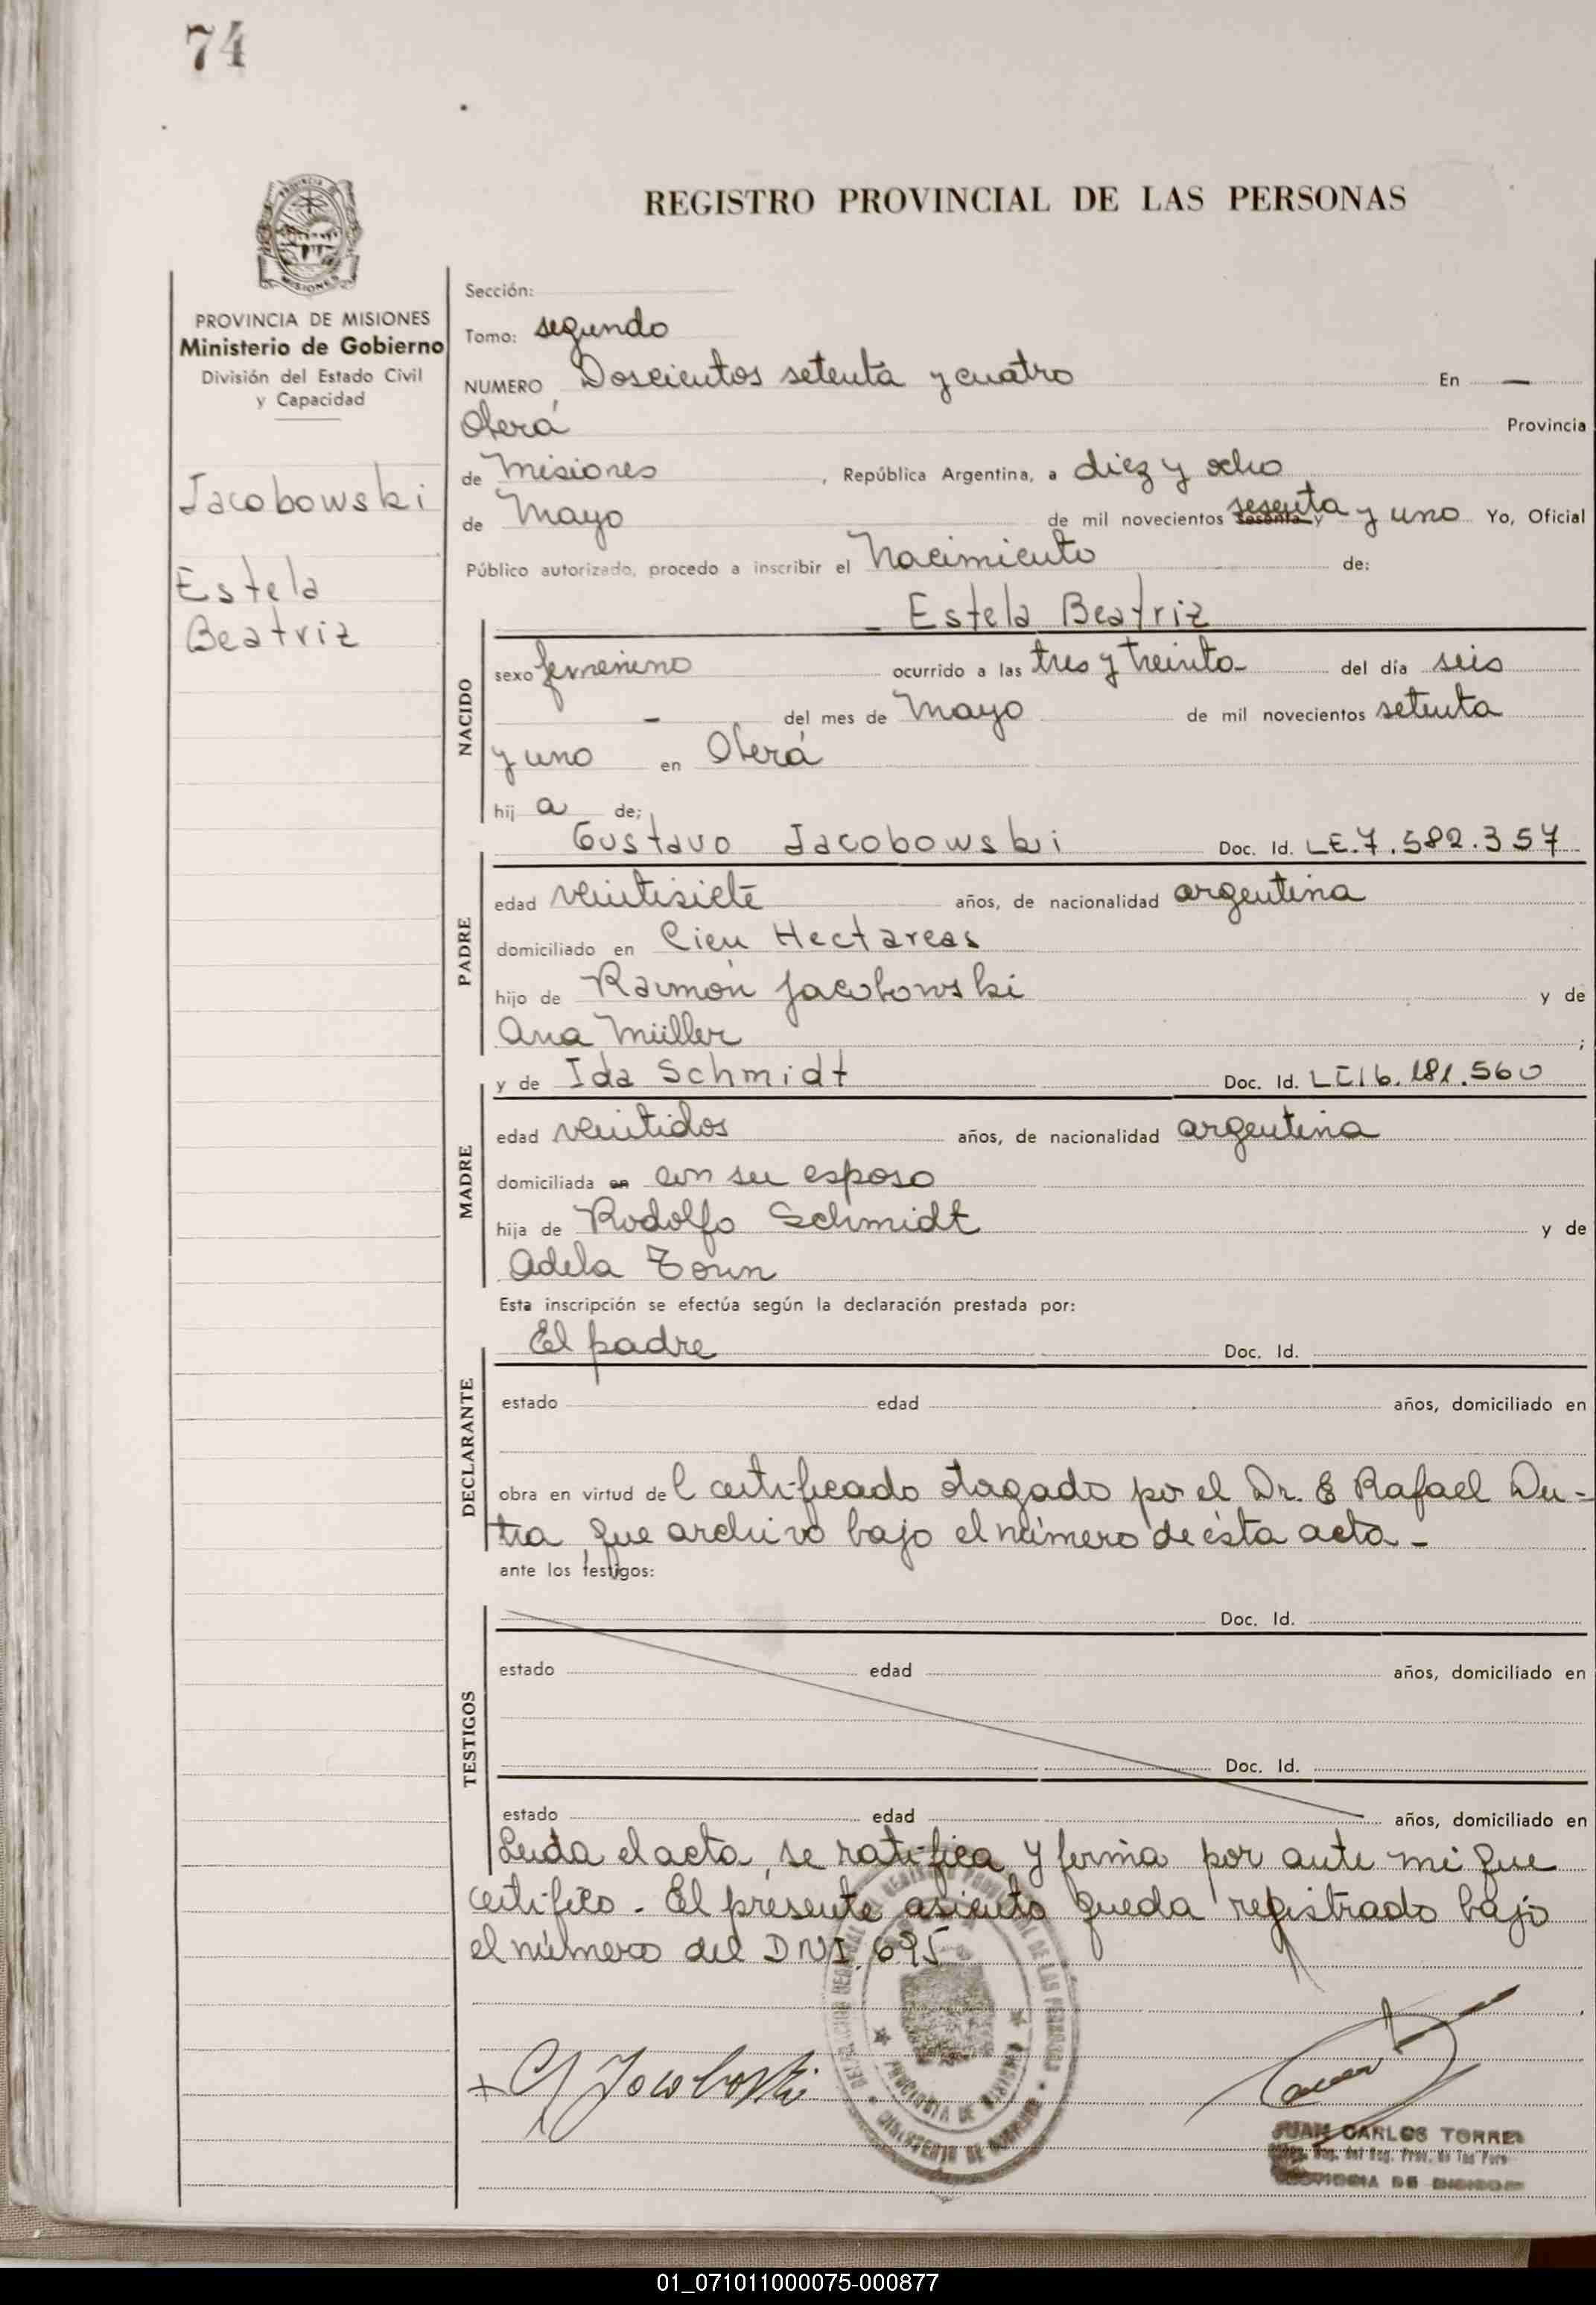 74
REGISTRO PROVINCIAL DE LAS PERSONAS
MISIONES
PROVINCIA DE MISIONES
Ministerio de Gobierno
División del Estado Civil
y Capacidad
Jacobowski
Estela
Beatriz
Sección:
Tomo: segundo
NUMERO Doscientos setenta y cuatro En —
Oberá Provincia
de Misiones, República Argentina, a diez y ocho
de Mayo de mil novecientos sesenta y uno Yo, Oficial
Público autorizado, procedo a inscribir el Nacimiento de:
Estela Beatriz
NACIDO
sexo femenino ocurrido a las tres y treinta del día seis
— del mes de Mayo de mil novecientos setenta
y uno en Oberá
hij a de;
Gustavo Jacobowski Doc. Id. LE.7.582.357
PADRE
edad veintisiete años, de nacionalidad argentina
domiciliado en Cien Hectareas
hijo de Raimon Jacobowski y de
Ana Müller ;
y de Ida Schmidt Doc. Id. LC 16.181.560
MADRE
edad veintidos años, de nacionalidad argentina
domiciliada en con su esposo
hija de Rodolfo Schmidt y de
Adela
Esta inscripción se efectúa según la declaración prestada por:
El padre Doc. Id.
DECLARANTE
estado edad años, domiciliado en
obra en virtud de l certificado otogado por el Dr. E Rafael Du-
tra que archivo bajo el número de ésta acta -
ante los testigos:
TESTIGOS
Doc. Id.
estado edad años, domiciliado en
Doc. Id.
estado edad años, domiciliado en
Leida el acta, se ratifica y firma por ante mi que
certifico. El presente asiento queda registrado bajo
el número del DNI. 695
PROVINCIA DE MISIONES
MINISTERIO DE GOBIERNO
G Jacoboski
JUAN CARLOS TORRES
01_071011000075-000877